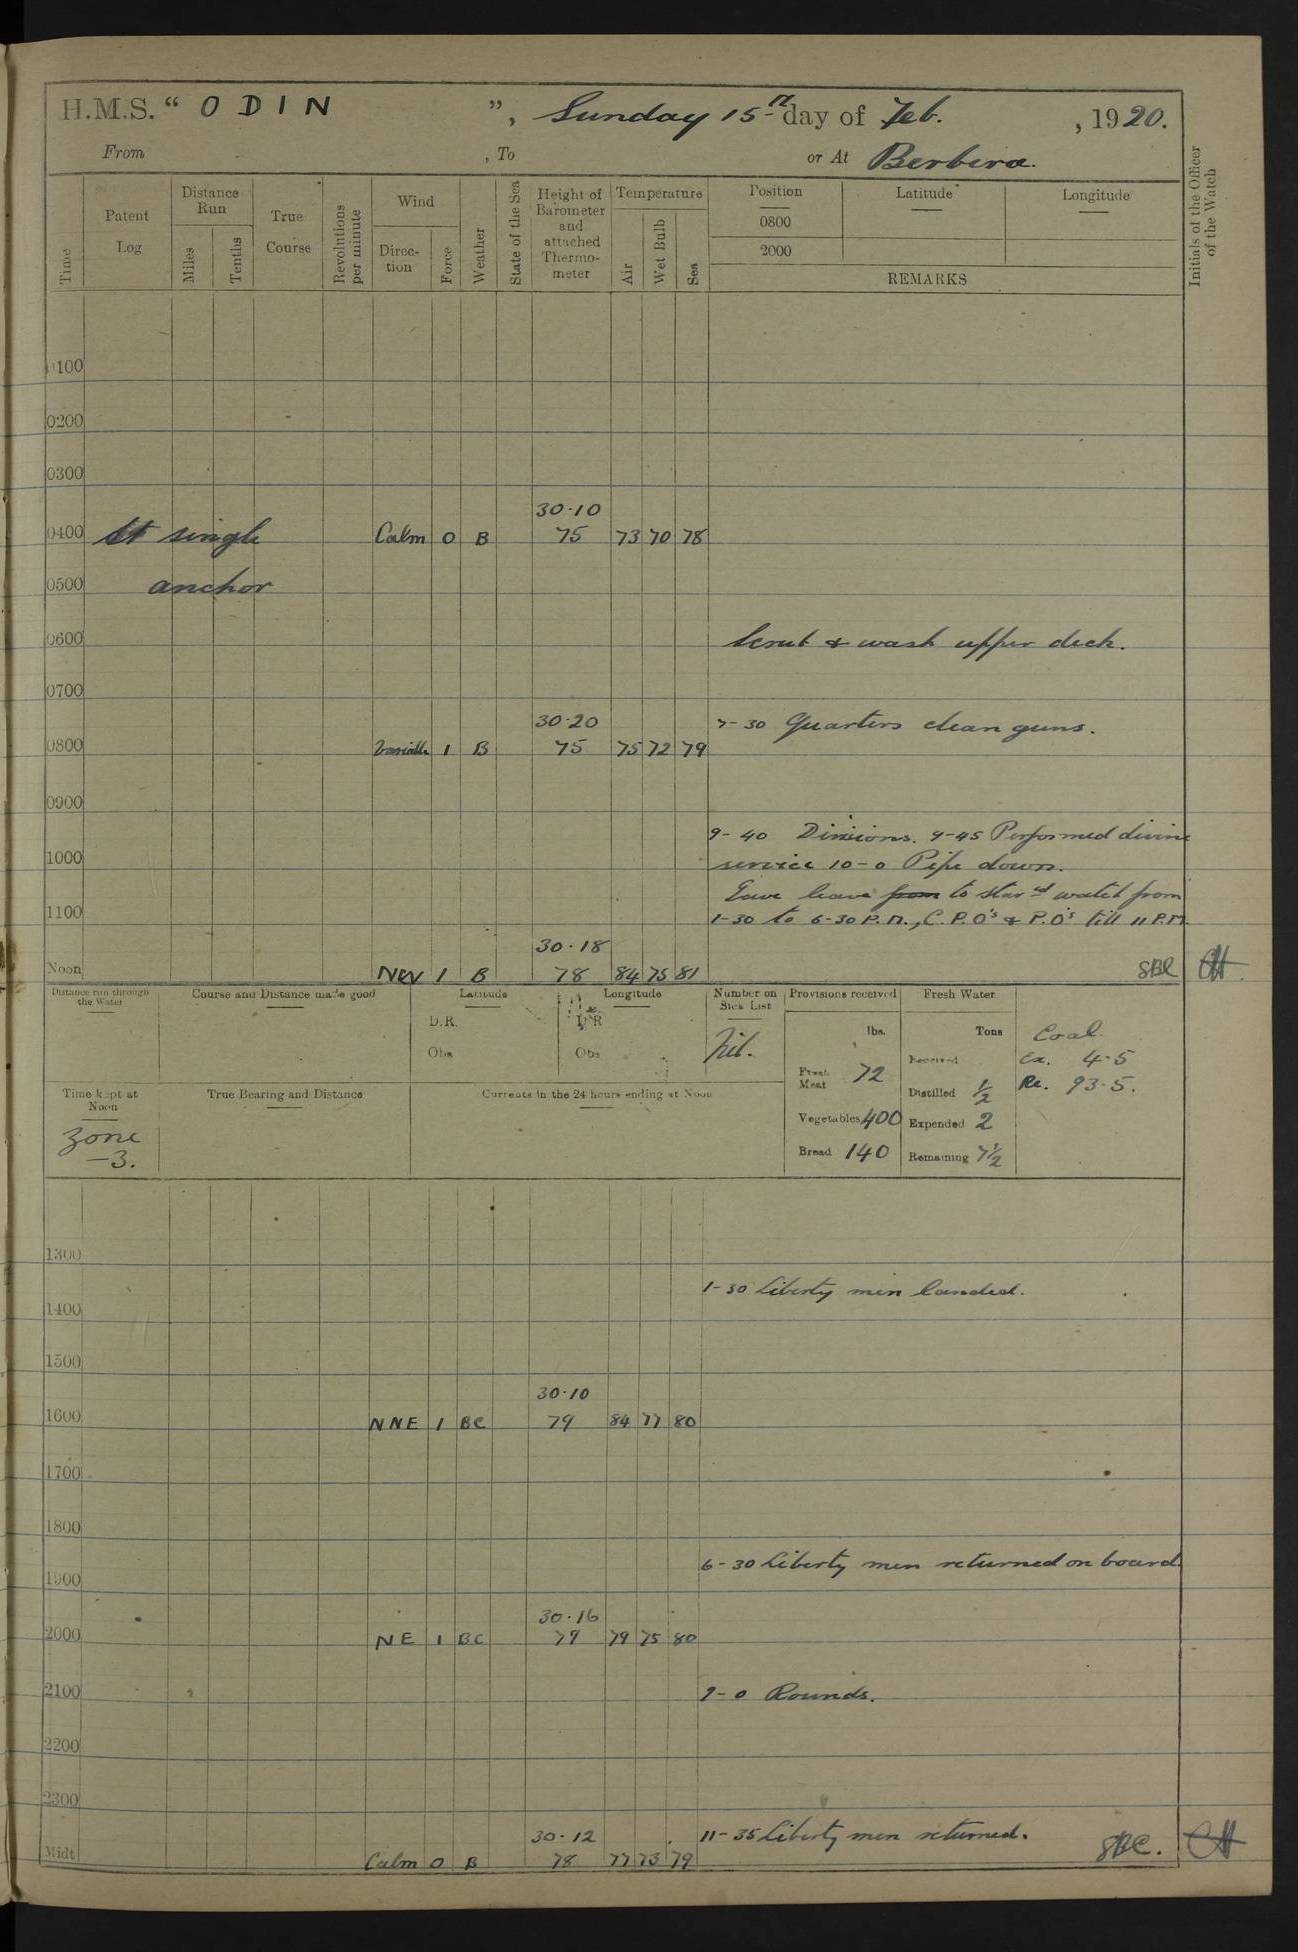 H.M.S. “ ODIN ”, Sunday 15th day of Feb. , 1920.
From , To or At Berbera.
Time
Patent Log
Distance Run
Miles
Tenths
True Course
Revolutions per minute
Wind
Direction
Force
Weather
State of the Sea
Height of Barometer and attached Thermometer
Temperature
Air
Wet Bulb
Sea
Position Latitude Longitude
0800
2000
REMARKS
Initials of the Officer of the Watch
0100
0200
0300
30·10
0400 At single Calm 0 B 75 73 70 78
0500 anchor
0600 Scrub & wash upper deck.
0700
30·20 7-30 Quarters clean guns.
0800 Variable 1 B 75 75 72 79
0900
9-40 Divisions. 9-45 Performed divine
1000 service 10-0 Pipe down.
Gave leave from to starbd watch from
1100 1-30 to 6-30 P.M., C.P.O's & P.O's till 11 P.M.
30·18
Noon NW 1 B 78 84 75 81
Distance run through the Water
Course and Distance made good
Latitude
D.R.
Obs
Longitude
D R
Obs
Number on Sick List
Nil.
Provisions received
lbs.
Fresh Meat 72
Vegetables 400
Bread 140
Fresh Water
Tons
Received
Distilled ½
Expended 2
Remaining 7½
Coal
Ex. 4·5
Re. 93·5.
Time kept at Noon
Zone
-3.
True Bearing and Distance
Currents in the 24 hours ending at Noon
1300
1-30 Liberty men landed.
1400
1500
30·10
1600 NNE 1 BC 79 84 77 80
1700
1800
6-30 Liberty men returned on board.
1900
30·16
2000 NE 1 BC 79 79 75 80
2100 9-0 Rounds.
2200
2300
30·12 11-35 Liberty men returned.
Midt Calm 0 B 78 77 73 79